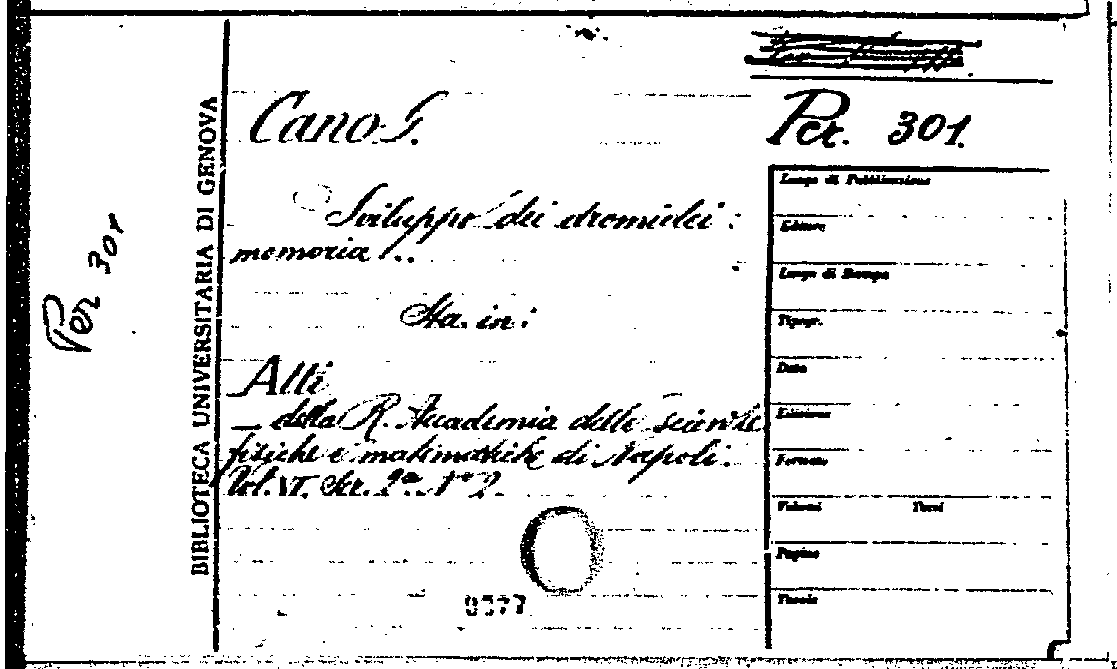 Per 301
BIBLIOTECA UNIVERSITARIA DI GENOVA
Cano G.
Per. 301.
Sviluppo dei dromidei :
memoria ..
Sta in :
Atti
_ della R. Accademia delle scienze
fisiche e matematiche di Napoli.
Vol. VI. Ser. 2ª N° 2.
0577
Luogo di Pubblicazione
Editore
Luogo di Stampa
Tipogr.
Data
Edizione
Formato
Volumi Tomi
Pagine
Tavole